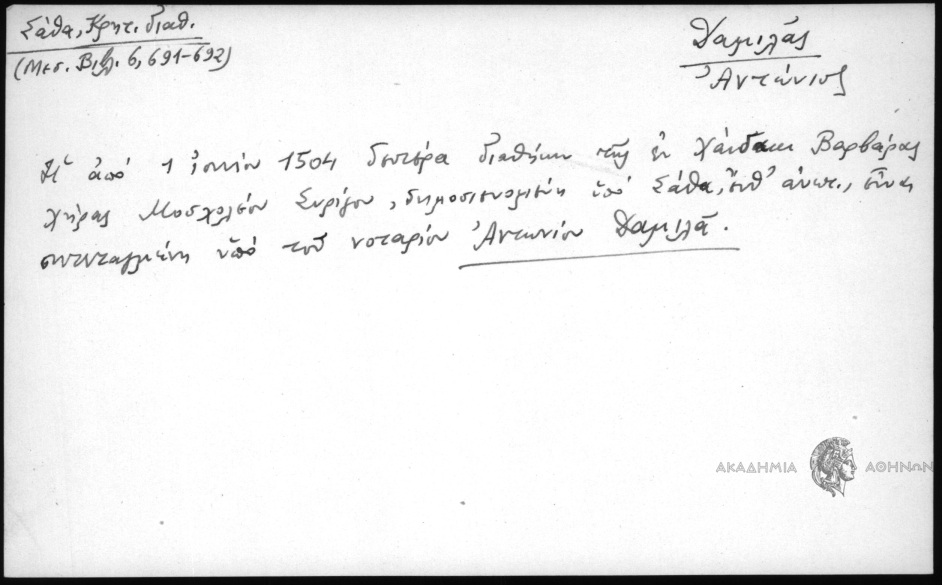 Σάθα, Κρητ. διαθ.
(Μεσ. Βιβλ. 6, 691-692)
Δαμιλᾶς
Ἀντώνιος
Ἡ ἀπό 1 ἰουνίου 1504 δευτέρα διαθήκη τῆς ἐν Χάνδακι Βαρβάρας
χήρας Μοσχολέου Συρίγου, δημοσιευομένη ὑπό Σάθα, ἔνθ' ἀνωτ., εἶναι
συντεταγμένη ὑπό τοῦ νοταρίου Ἀντωνίου Δαμιλᾶ.
ΑΚΑΔΗΜΙΑ ΑΘΗΝΩΝ